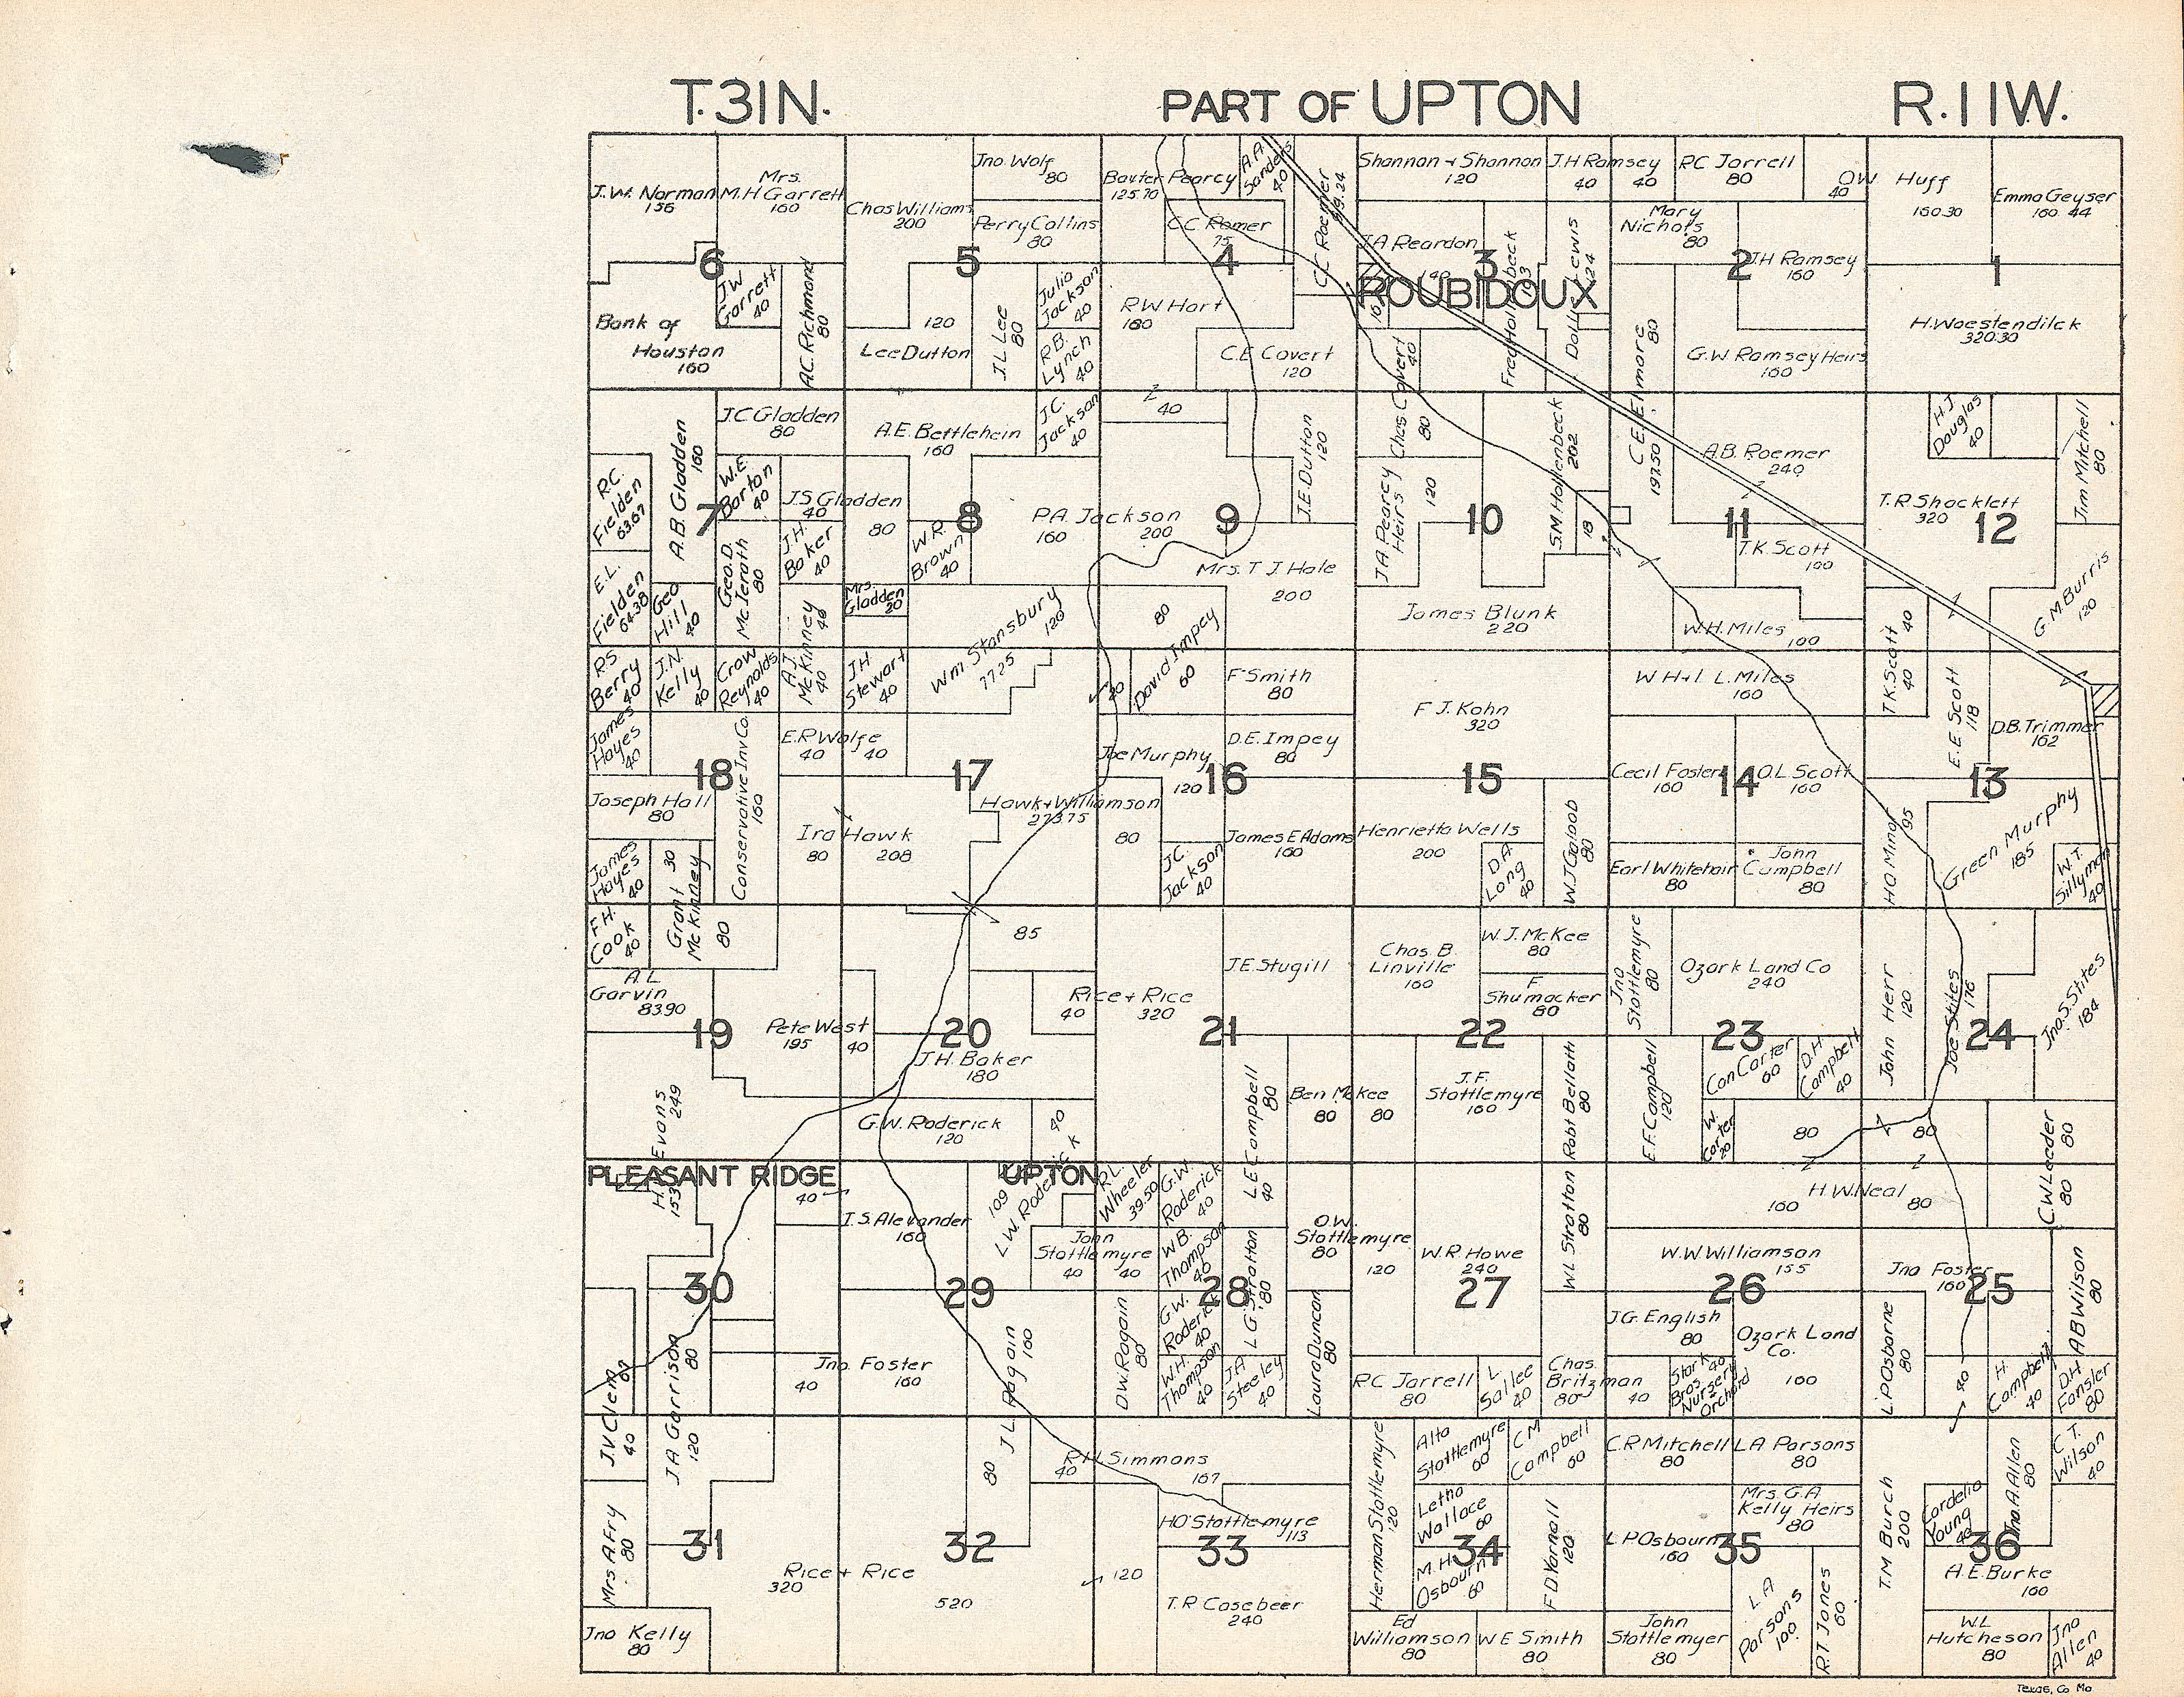 T.31N.
PART OF UPTON
R.11W.
J.W. Norman
156
Mrs.
M.H Garrett
160
Chas Williams
200
Jno. Wolf
80
Perry Collins
80
Baxter Pearcy
125.70
A.A.
Sanders
40
C.C. Romer
75
C.C Roemer
Shannon + Shannon
120
J.H Ramsey
40
40
R.C Jarrell
80
O.W. Huff
40
160.30
Emma Geyser
160.44
6
5
4
3
2
1
J.W
Garrett
40
A.C. Richmond
80
Bank of
Houston
160
120
Lee Dutton
J L Lee
80
Julia
Jackson
40
R.B.
Lynch
40
R.W Hart
160
C.E Covert
120
J.A Reardon
ROUBIDOUX
Dolly Lewis
124
Mary
Nichols
80
J.H Ramsey
160
G.W Ramsey Heirs
160
H. Woestendilck
320.30
J.C Gladden
80
A.E. Bettlehein
160
J.C.
Jackson
40
40
A.B. Gladden
160
R.C.
Fielden
63.67
W.E.
Barton
40
J.S Gladden
40
80
J.H.
Baker
40
W.R.
Brown
40
P.A. Jackson
160
200
J.E. Dutton
120
Chas Covert
40
80
J A Pearcy
Heirs
120
S.M Hollenbeck
202
18
C E Elmore
80
197.50
A.B. Roemer
240
H.J.
Douglas
40
Jim Mitchell
80
T.R Shocklett
320
7
8
9
10
11
12
E.L.
Fielden
64.38
Geo
Hill
40
Geo. D.
McJerath
80
Mrs.
Gladden
20
Mrs. T J Hale
200
T.K. Scott
100
G M Burris
120
James Blunk
220
W.H. Miles
100
T.K. Scott
40
40
R.S
Berry
40
J.N.
Kelly
40
Crow
Reynolds
40
A J.
McKinney
40
40
J.H.
Stewart
40
Wm Stansbury
120
77.25
80
David Impey
60
40
F Smith
80
F J. Kohn
320
W H + I L. Miles
160
E.E Scott
118
D.B. Trimmer
162
James
Hayes
40
Conservative Inv Co.
160
E.R Wolfe
40
40
Joe Murphy
120
D.E. Impey
80
Cecil Foster
160
O.L Scott
160
18
17
16
15
14
13
Joseph Hall
80
Ira Hawk
80
208
Hawk + Williamson
273.75
80
J.C.
Jackson
40
James E Adams
160
Henrietta Wells
200
D.A
Long
40
80
Earl Whitehair
80
John
Campbell
80
H O Minor
95
Green Murphy
185
W.T.
Sillyman
40
James
Hayes
40
Grant
McKinney
30
80
F.H.
Cook
40
A.L
Garvin
83.90
Pete West
195
40
85
Rice + Rice
40
320
J.E. Stugill
Chas. B.
Linville
160
W.J. McKee
80
F
Shumacker
80
Jno
Stottlemyre
80
Ozark Land Co
240
John Herr
120
Joe Stites
176
Jno. S. Stites
184
19
20
21
22
23
24
J.H. Baker
180
G.W. Roderick
120
40
L E Campbell
80
40
Ben McKee
80
80
J.F.
Stottlemyre
160
Robt Bellath
80
E.F. Campbell
120
Con Carter
60
D.H
Campbell
40
W.
Carter
20
80
80
C.W Leeder
80
80
H. Evans
249
153
PLEASANT RIDGE
UPTON
40
J.S. Alexander
160
109
L.W. Roderick
R.L.
Wheeler
39.50
G.W.
Roderick
40
John
Stottlemyre
40
40
W.B.
Thompson
40
L G. Stratton
80
O.W.
Stottlemyre
80
120
W.R. Howe
240
W L Stratton
80
160
H.W. Neal
80
W.W Williamson
155
Jno Foster
160
A B Wilson
80
30
29
28
27
26
25
J.V Clem
40
J A Garrison
80
120
Jno. Foster
40
160
J L Ragain
160
80
D.W. Ragain
80
G.W.
Roderick
40
W.H.
Thompson
40
J.A
Steeley
40
Laura Duncan
80
R.C Jarrell
80
L
Sallee
40
Chas.
Britzman
80
40
J.G. English
80
Stark
Bros 40
Nursery
Orchard
Ozark Land
Co.
100
L.P. Osborne
80
40
H.
Campbell
40
D.H
Fansler
80
Mrs Afry
80
R H Simmons
40
167
Herman Stottlemyre
120
Alta
Stottlemyre
60
C M
Campbell
60
C.R. Mitchell
80
L.A Parsons
80
Jno. A. Allen
80
C T.
Wilson
40
Letha
Wallace
60
Mrs. G.A
Kelly Heirs
80
Cordelia
Young
40
H.O. Stottlemyre
113
M.H.
Osbourn
60
F D Varnall
120
L P Osbourn
160
T.M Burch
200
31
32
33
34
35
36
Rice + Rice
320
520
120
A.E. Burke
160
Jno Kelly
80
T.R Casebeer
240
Ed
Williamson
80
W E Smith
80
John
Stottlemyer
80
L A
Parsons
100
R.T Jones
60
W.L
Hutcheson
80
Jno
Allen
40
Texas, Co Mo